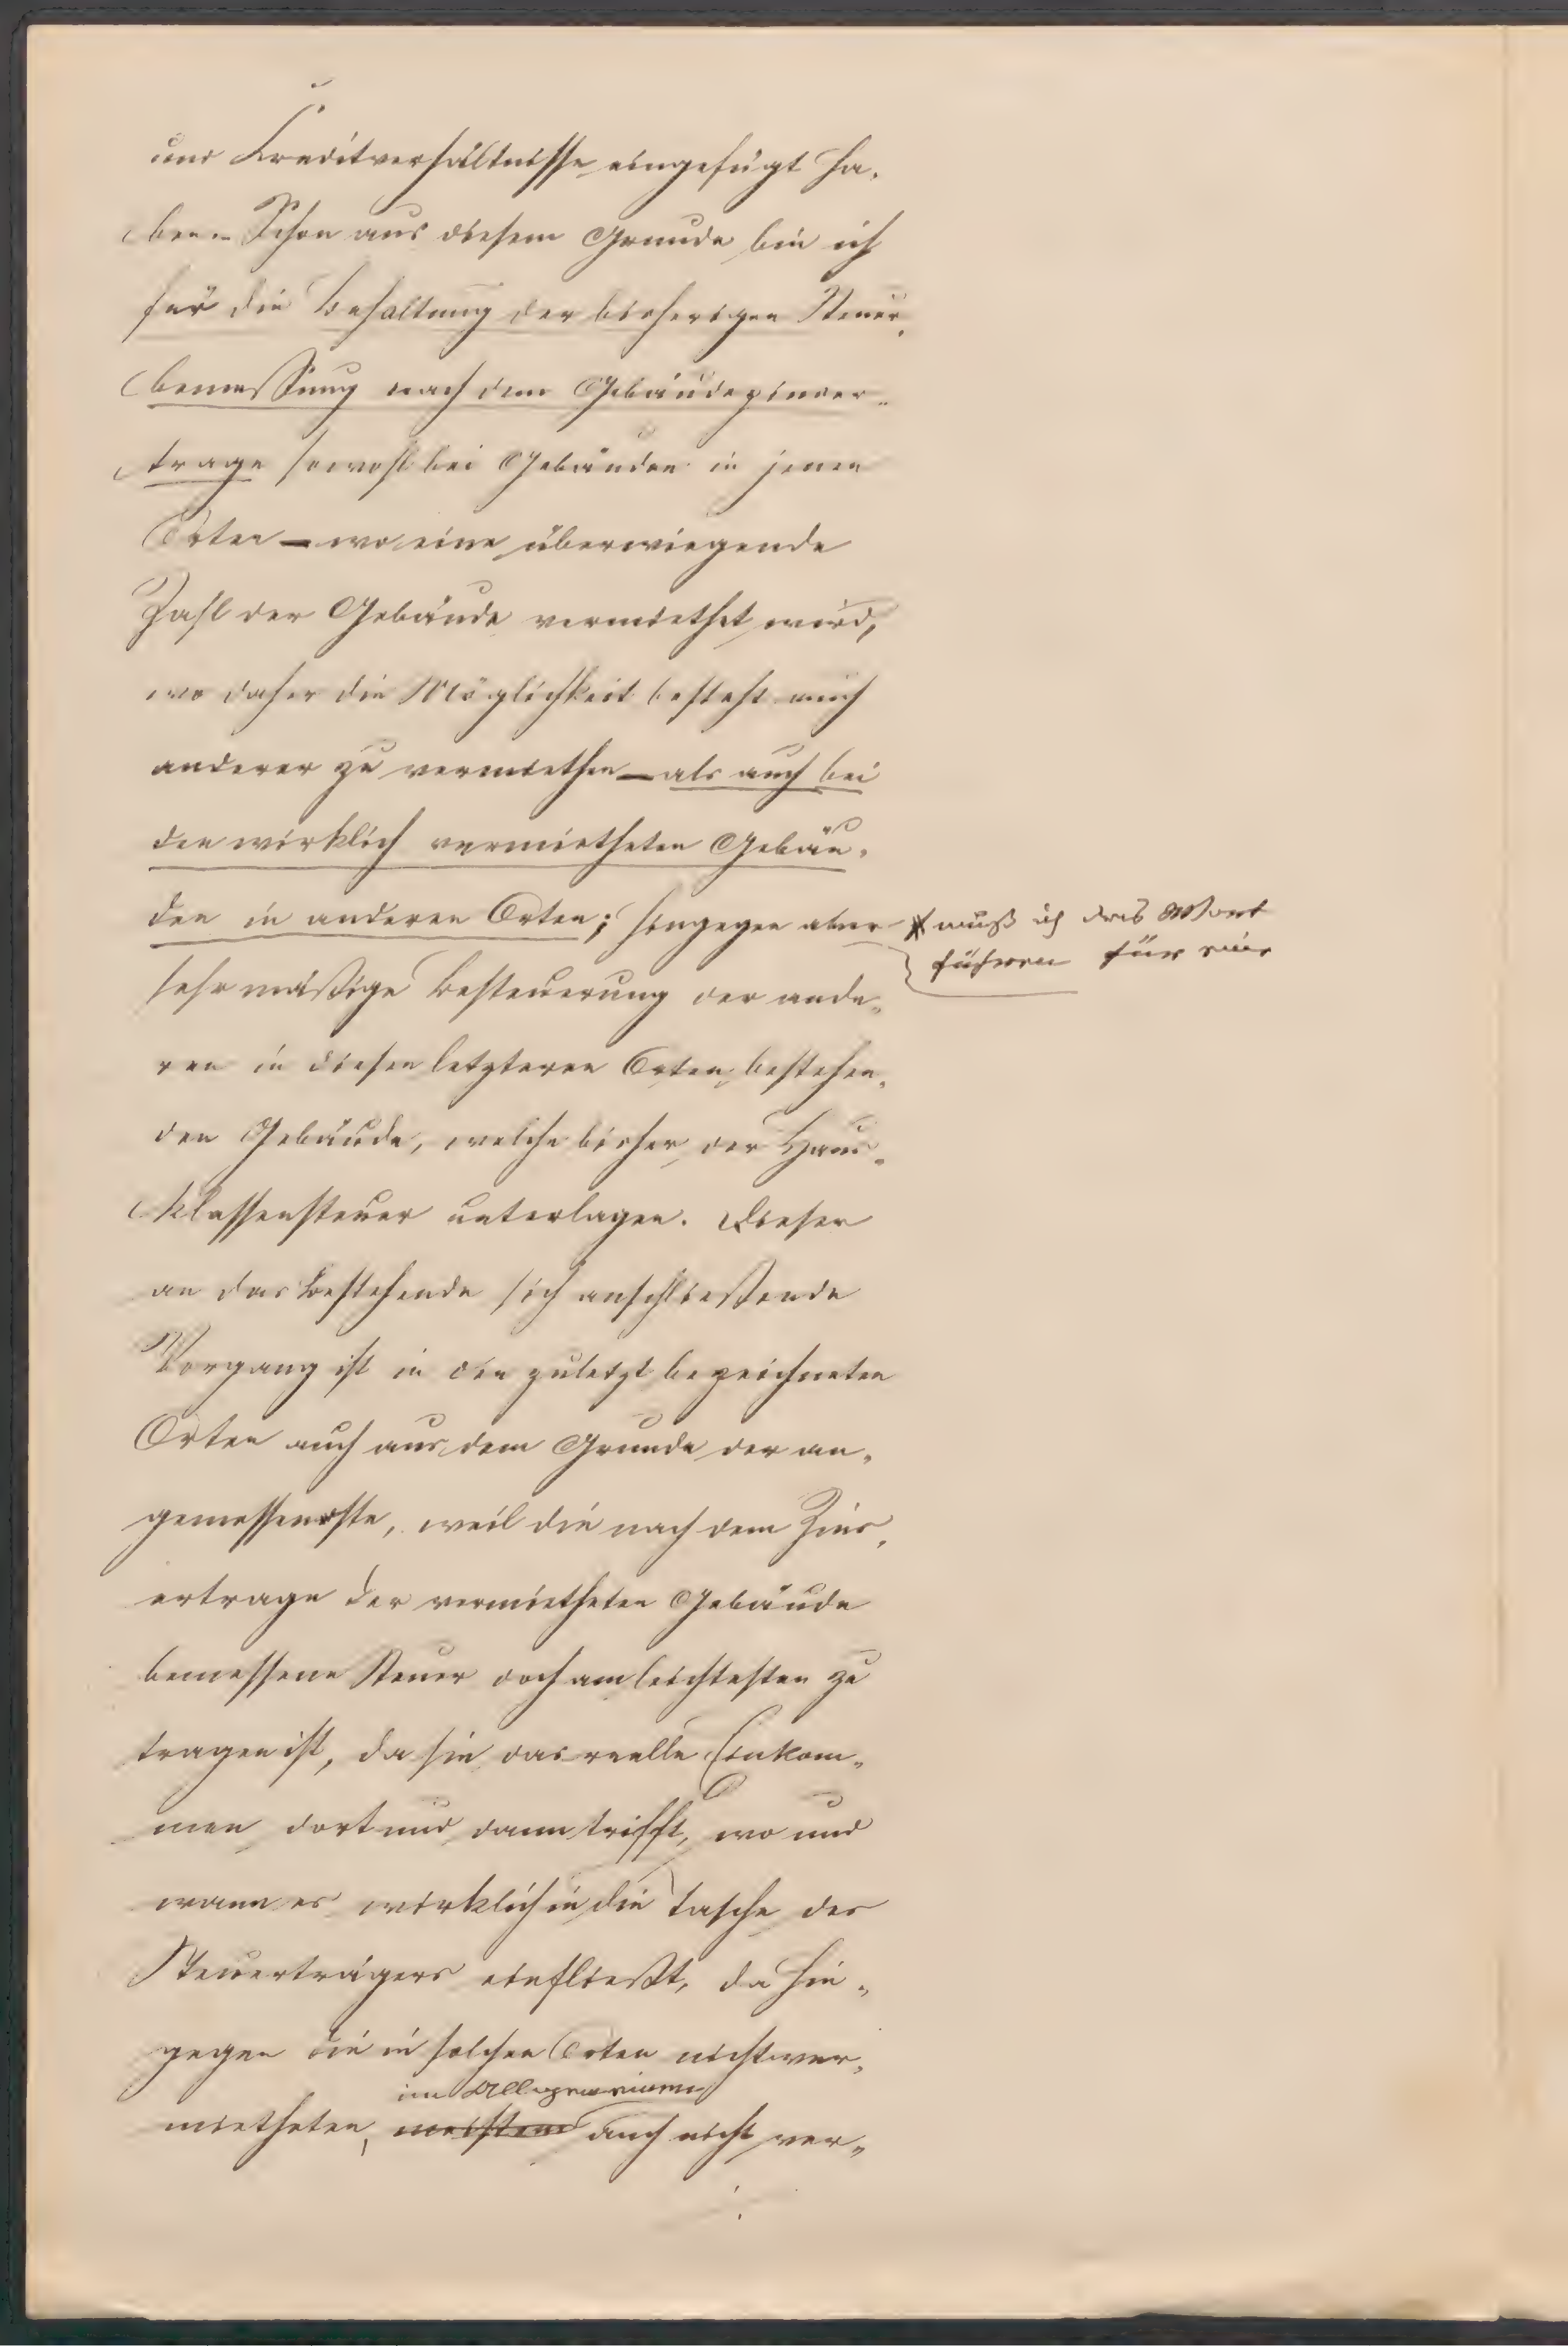 und Kreditverhältnisse eingefügt ha-
ben. – Schon aus diesem Grunde bin ich
für die Behaltung der bisherigen Steuer-
bemessung nach dem Gebäudezinser-
trage sowohl bei Gebäuden in jenen
Orten – wo eine überwiegende
Zahl der Gebäude vermiethet wird,
wo daher die Möglichkeit besteht auch
anderer zu vermiethen – als auch bei
den wirklich vermietheten Gebäu-
den in anderen Orten; hingegen aber
muß ich das Wort
führen für eine
sehr mäßige Besteuerung der ande-
ren in diesen letzteren Orten bestehen-
den Gebäude, welche bisher der Haus-
klassensteuer unterlagen. Dieser
an das Bestehende sich anschließende
Vorgang ist in den zuletzt bezeichneten
Orten auch aus dem Grunde der an-
gemessenste, weil die nach dem Zins-
ertrage der vermietheten Gebäude
bemessene Steuer doch am leichtesten zu
tragen ist, da sie das reelle Einkom-
men dort und dann trifft, wo und
wann es wirklich in die Tasche des
Steuerträgers einfließt, da hin-
gegen die in solchen Orten nicht ver-
im Allgemeinen
mietheten, meistens auch nicht ver-